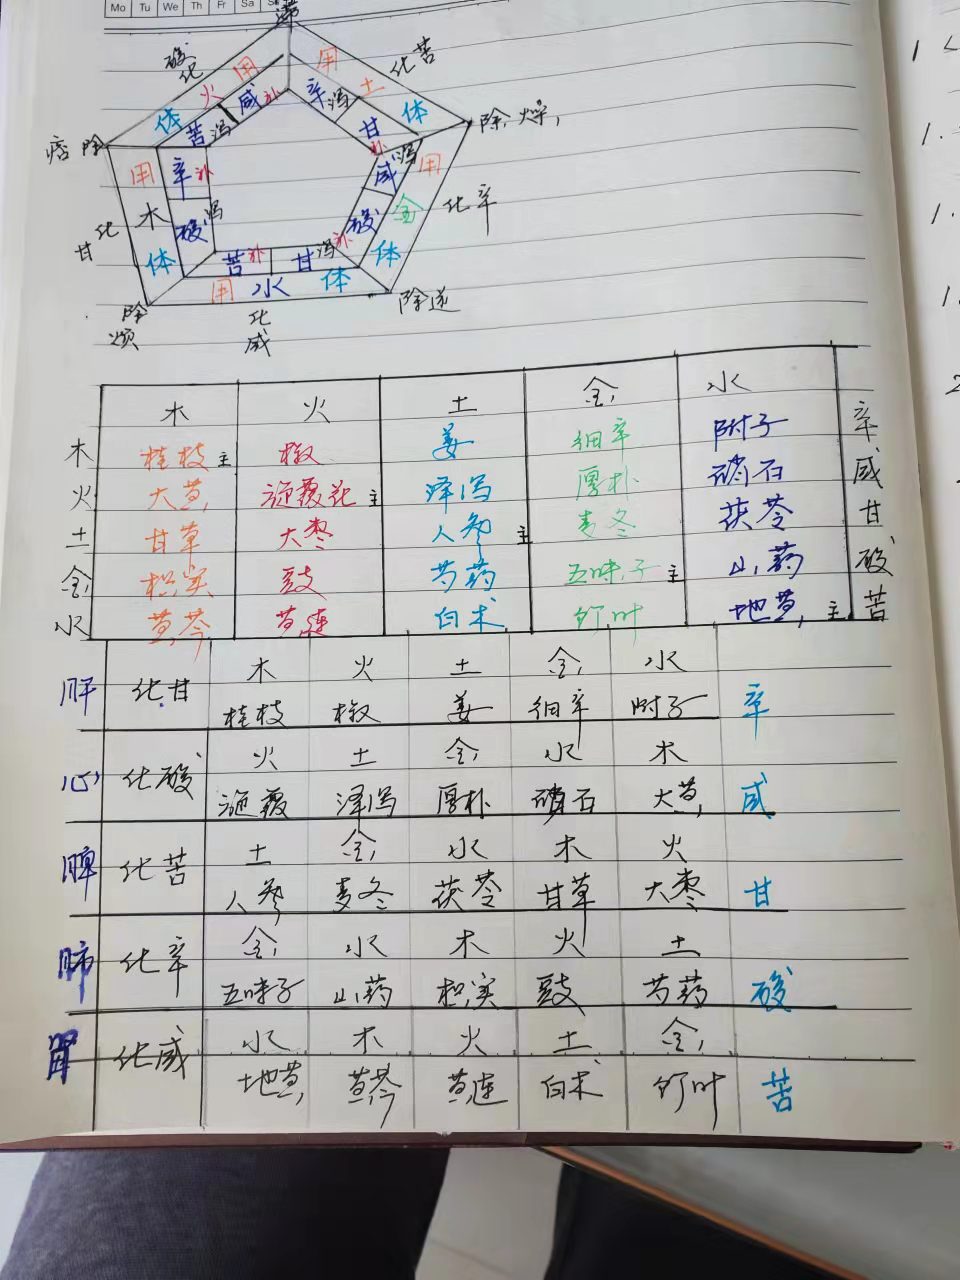 Mo Tu We Th Fr Sa
滞
酸化
用
用
化苦
火
咸补
辛泻
土
体
苦泻
甘补
体
除燥
痞 除
用
辛补
咸泻
用
化甘
木
酸泻
酸补
金
化辛
体
苦补
甘泻
体
用
水
体
除烦
化咸
除逆
木 火 土 金 水
木 桂枝主 椒 姜 细辛 附子 辛
火 大黄 旋覆花主 泽泻 厚朴 硝石 咸
土 甘草 大枣 人参主 麦冬 茯苓 甘
金 枳实 豉 芍药 五味子主 山药 酸
水 黄芩 黄连 白术 竹叶 地黄主 苦
木 火 土 金 水
肝 化甘 桂枝 椒 姜 细辛 附子 辛
火 土 金 水 木
心 化酸 旋覆 泽泻 厚朴 硝石 大黄 咸
土 金 水 木 火
脾 化苦 人参 麦冬 茯苓 甘草 大枣 甘
金 水 木 火 土
肺 化辛 五味子 山药 枳实 豉 芍药 酸
水 木 火 土 金
肾 化咸 地黄 黄芩 黄连 白术 竹叶 苦